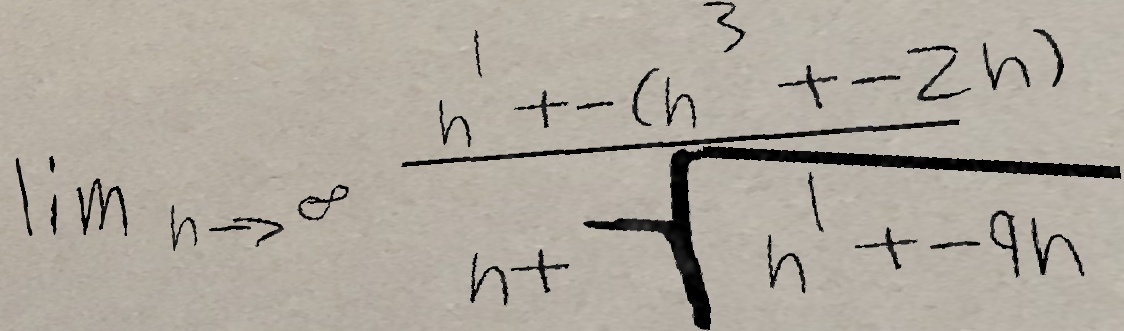 lim n→∞ \frac{n^1 + -(n^3 + -2n)}{n + -\sqrt{n^1 + -9n}}